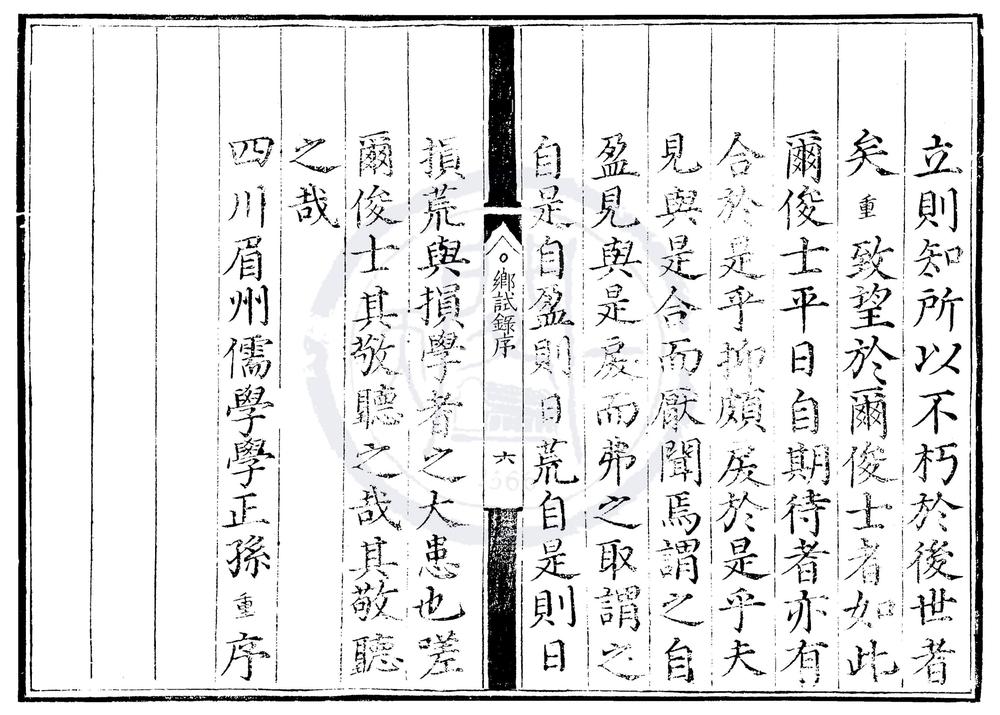 立則知所以不朽於後世者
矣重致望於爾俊士者如此
爾俊士平日自期待者亦有
合於是乎抑頗戾於是乎夫
見與是合而厭聞焉謂之自
盈見與是戾而弗之取謂之
自是自盈則日荒自是則日
鄉試錄序
六
損荒與損學者之大患也嗟
爾俊士其敬聽之哉其敬聽
之哉
四川眉州儒學學正孫重序